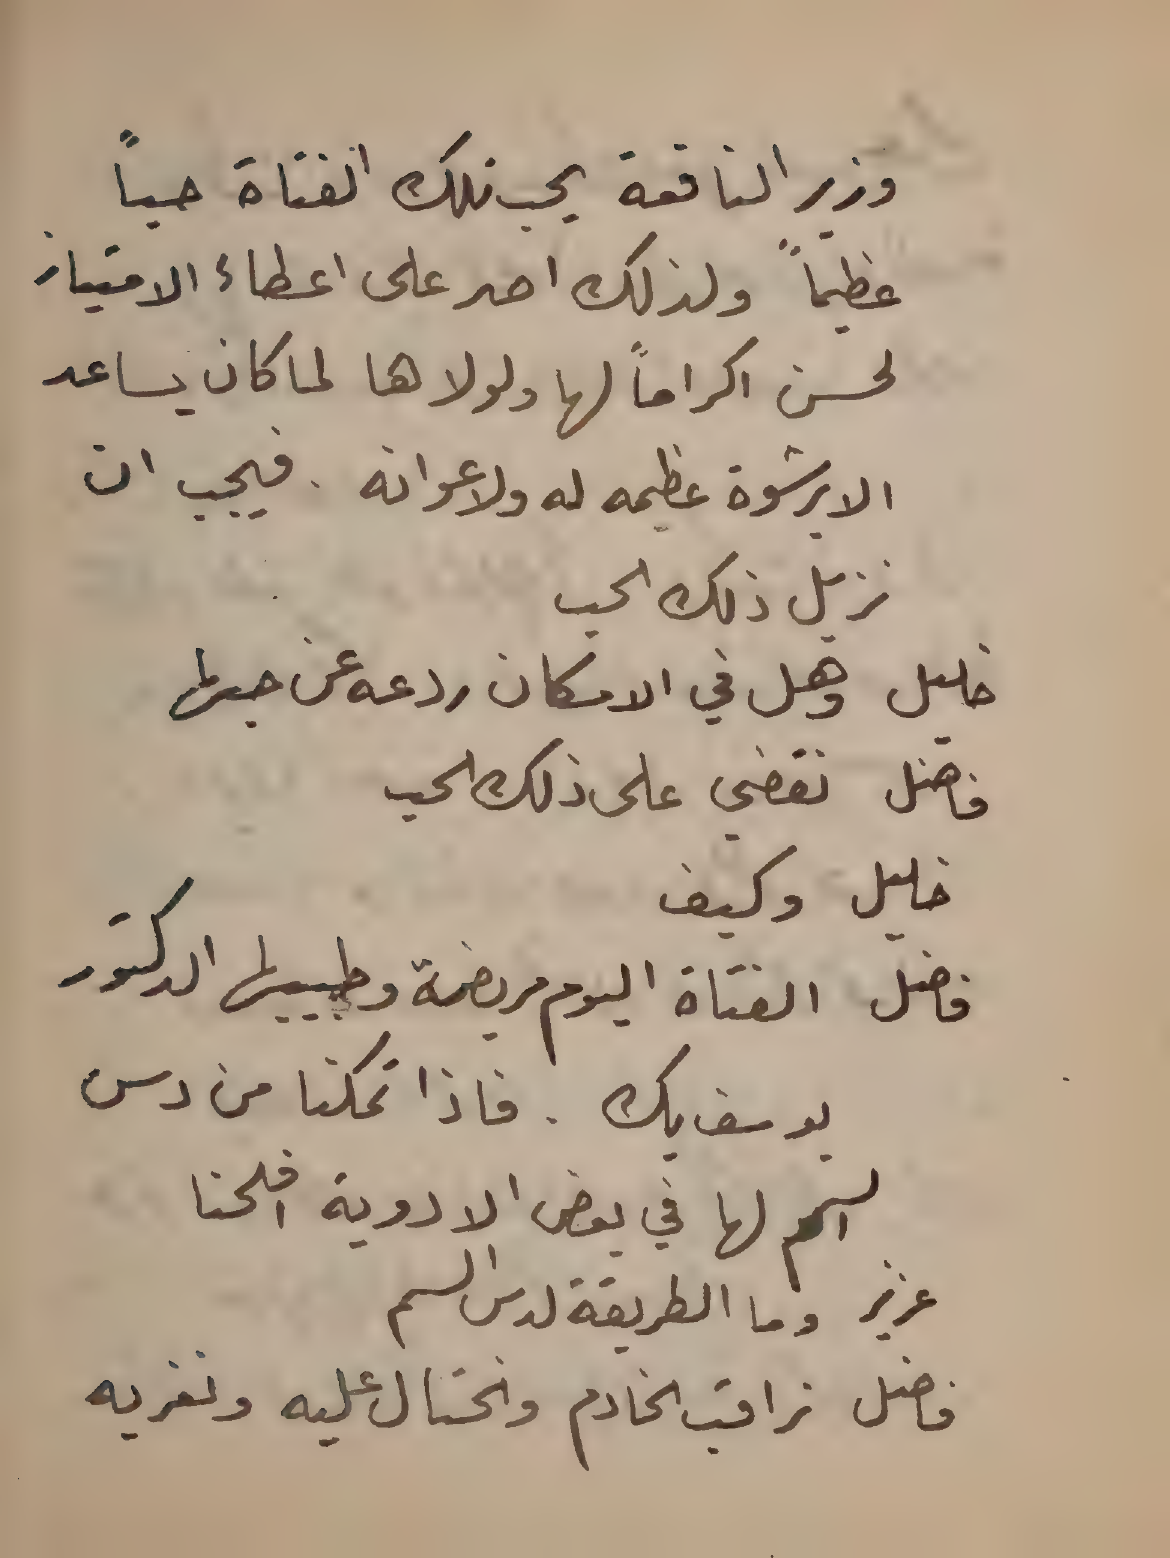 وزير النافعة يحب تلك الفتاة حباً
عظيماً ولذلك اصر على اعطاء الامتياز
لحسن اكراماً لها ولولاها لما كان يساعد
الا برشوة عظيمه له ولاعوانه . فيجب ان
نزيل ذلك الحب
خليل وهل في الامكان ردعه عن حبها
فاضل نقضي على ذلك الحب
خليل وكيف
فاضل الفتاة اليوم مريضة وطبيبها الدكتور
يوسف بك . فاذا تمكنا من دس
السم لها في بعض الادوية افلحنا
عزيز وما الطريقة لدس السم
فاضل نراقب الخادم ونحتال عليه ونغريه